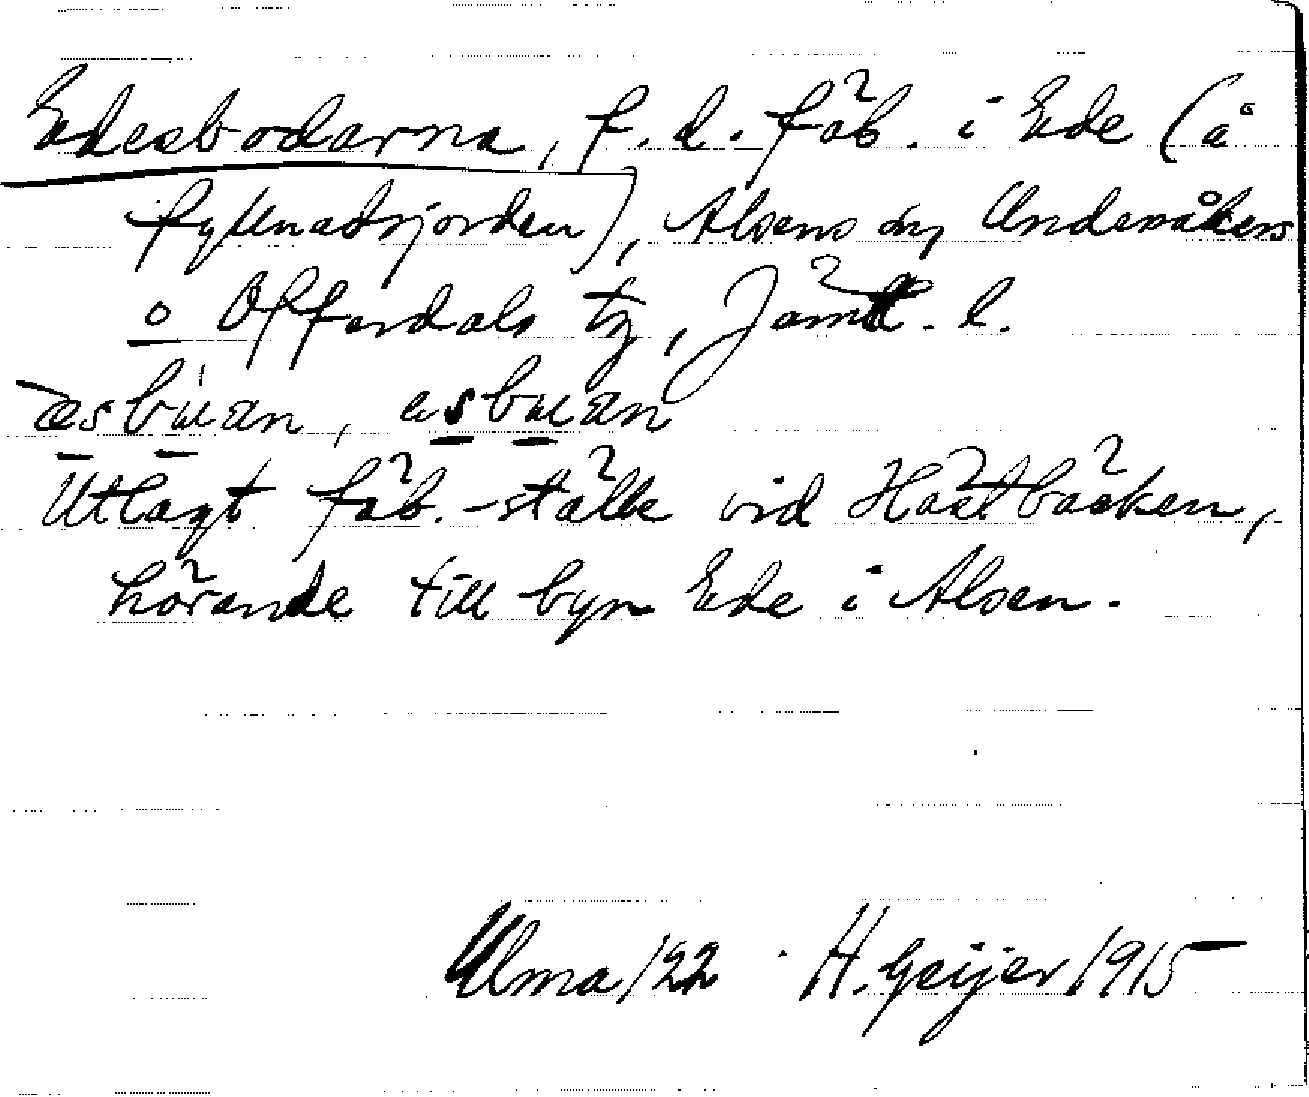 Edesbodarna, f.d. fäb. i Ede (å
fyllnadsjorden), Alsens sn, Undersåkers
o Offerdals tg, Jämtl. l.
æsbuan, æsbuan
Utlagt fäb.-ställe vid Hästbäcken,
hörande till byn Ede i Alsen.
Ulma 122 · H. Geijer 1915